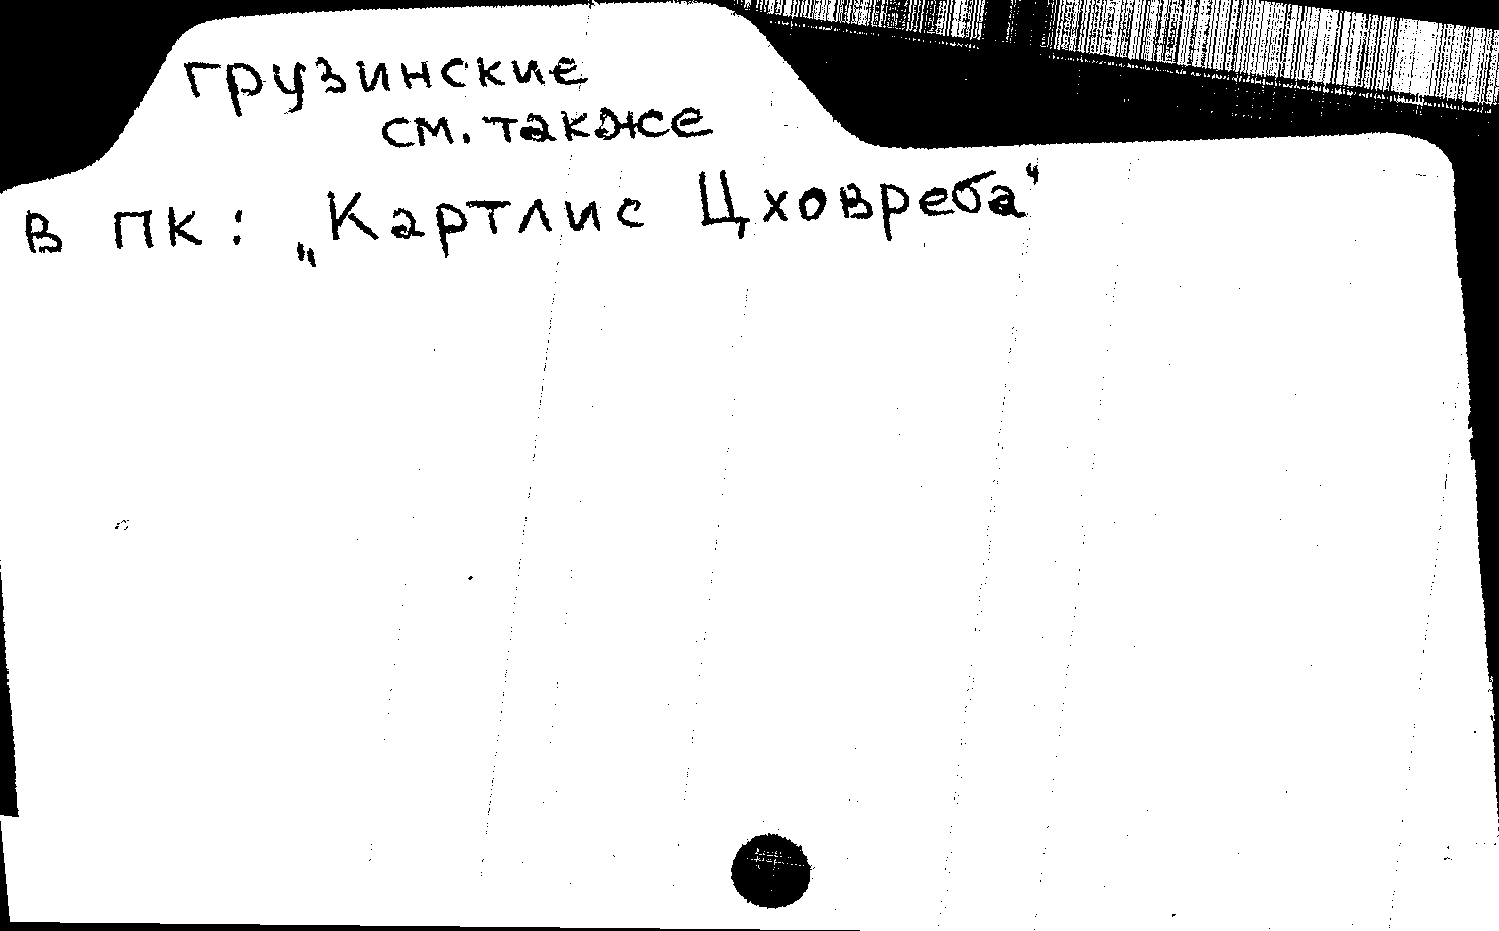 грузинские
см. также
в пк: „Картлис Цховреба“